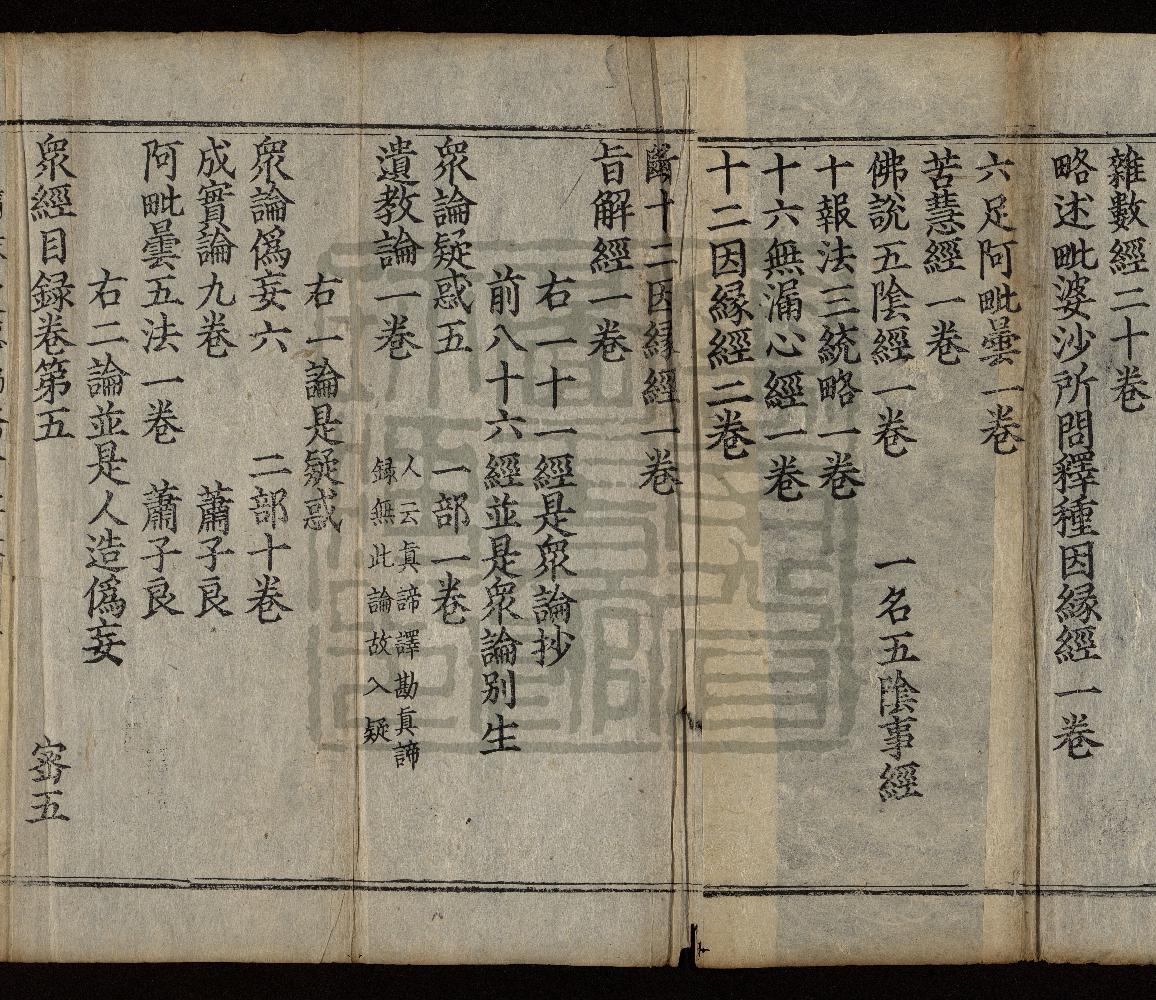 雜數經二十卷
略述毗婆沙所問釋種因緣經一卷
六足阿毗曇一卷
苦慧經一卷
佛說五陰經一卷　一名五陰事經
十報法三統略一卷
十六無漏心經一卷
十二因緣經二卷
斷十二因緣經一卷
旨解經一卷
右一十一經是衆論抄
前八十六經並是衆論別生
衆論疑惑五　一部一卷
遺教論一卷　人云眞諦譯勘眞諦録無此論故入疑
右一論是疑惑
衆論僞妄六　二部十卷
成實論九卷　蕭子良
阿毗曇五法一卷　蕭子良
右二論並是人造僞妄
衆經目録卷第五　密五